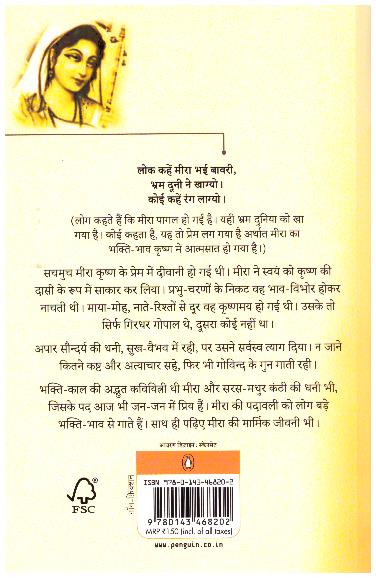 लोक कहें मीरा भई बावरी,
भ्रम दूनी ने खाग्यो।
कोई कहें रंग लाग्यो।
(लोग कहते हैं कि मीरा पागल हो गई है। यही भ्रम दुनिया को खा
गया है। कोई कहता है, यह तो प्रेम लग गया है अर्थात मीरा का
भक्ति-भाव कृष्ण ने आत्मसात हो गया है।)
सचमुच मीरा कृष्ण के प्रेम में दीवानी हो गई थी। मीरा ने स्वयं को कृष्ण की
दासी के रूप में साकार कर लिया। प्रभु-चरणों के निकट वह भाव-विभोर होकर
नाचती थी। माया-मोह, नाते-रिश्तों से दूर वह कृष्णमय हो गई थी। उसके तो
सिर्फ गिरधर गोपाल थे, दूसरा कोई नहीं था।
अपार सौन्दर्य की धनी, सुख-वैभव में रही, पर उसने सर्वस्व त्याग दिया। न जाने
कितने कष्ट और अत्याचार सहे, फिर भी गोविन्द के गुन गाती रही।
भक्ति-काल की अद्भुत कवियित्री थी मीरा और सरस-मधुर कंठी की धनी भी,
जिसके पद आज भी जन-जन में प्रिय हैं। मीरा की पदावली को लोग बड़े
भक्ति-भाव से गाते हैं। साथ ही पढ़िए मीरा की मार्मिक जीवनी भी।
आवरण डिज़ाइन :
FSC
नॉन-फ़िक्शन
ISBN 978-0-143-46820-2
9 780143 468202
MRP ₹150 (incl. of all taxes)
www.penguin.co.in